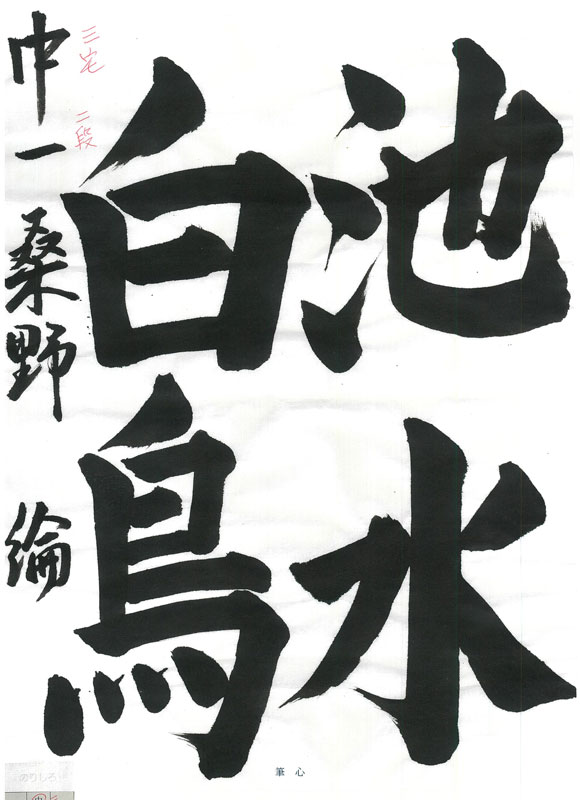 池水
白鳥
中一 桑野 綸
三宅 二段
筆心
のりしろ